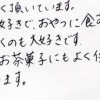 く頂いています。
好きで、おやつに食
くのも大好きです。
お茶菓子にもよく
ます。